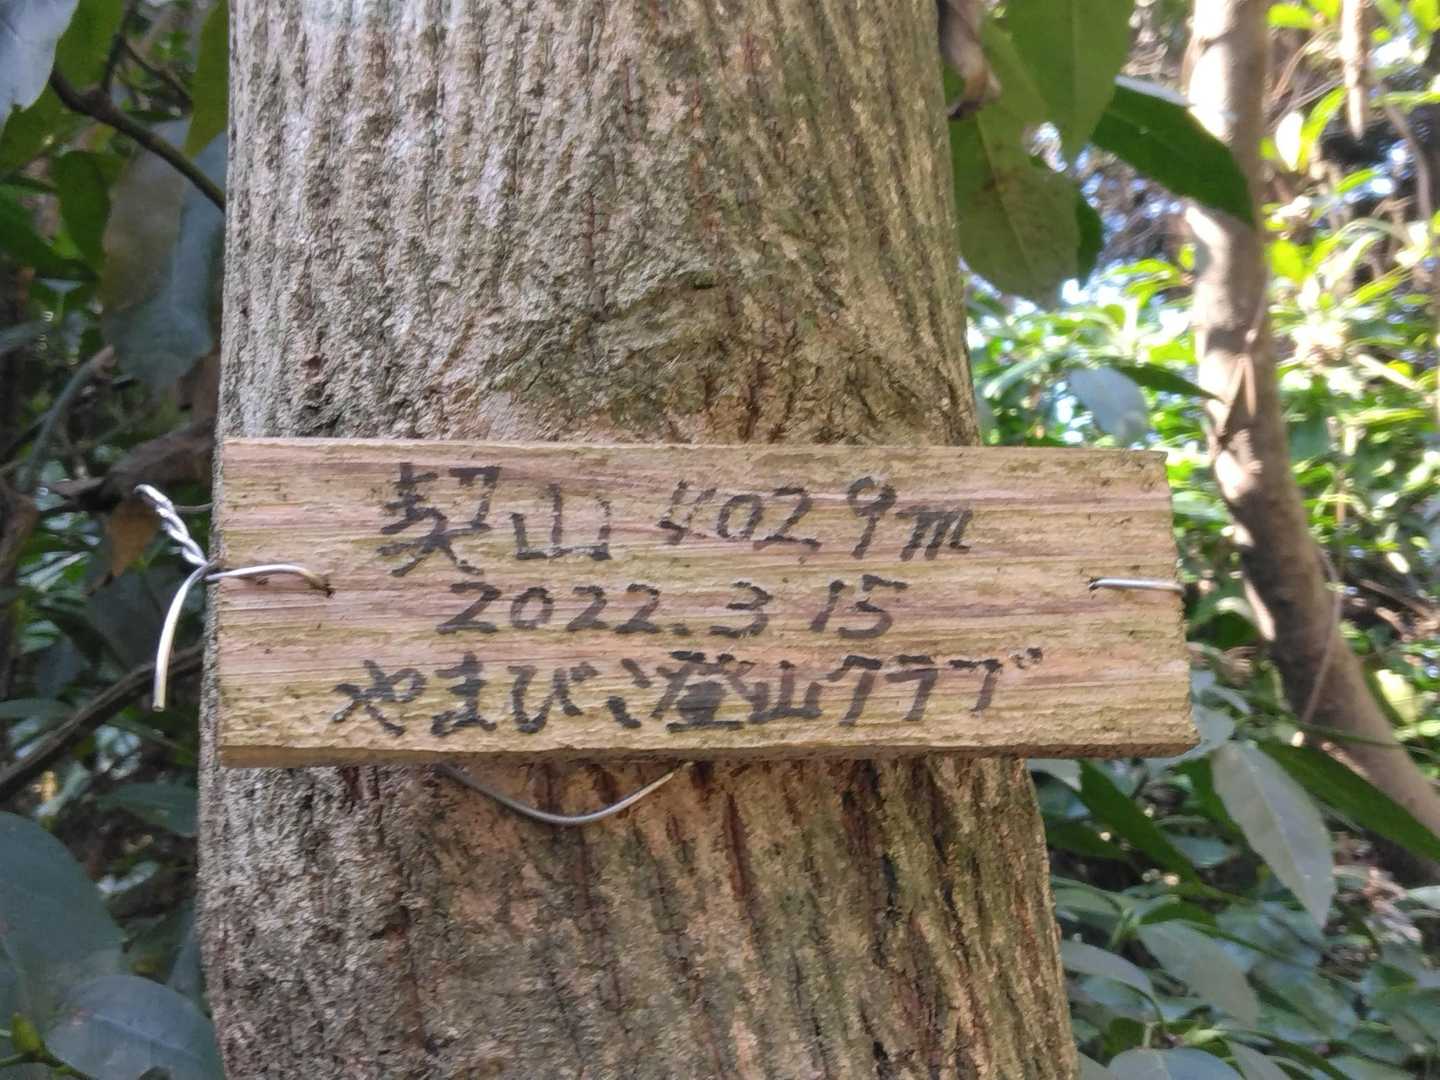 契山 402.9m
2022.3.15
やまびこ登山クラブ